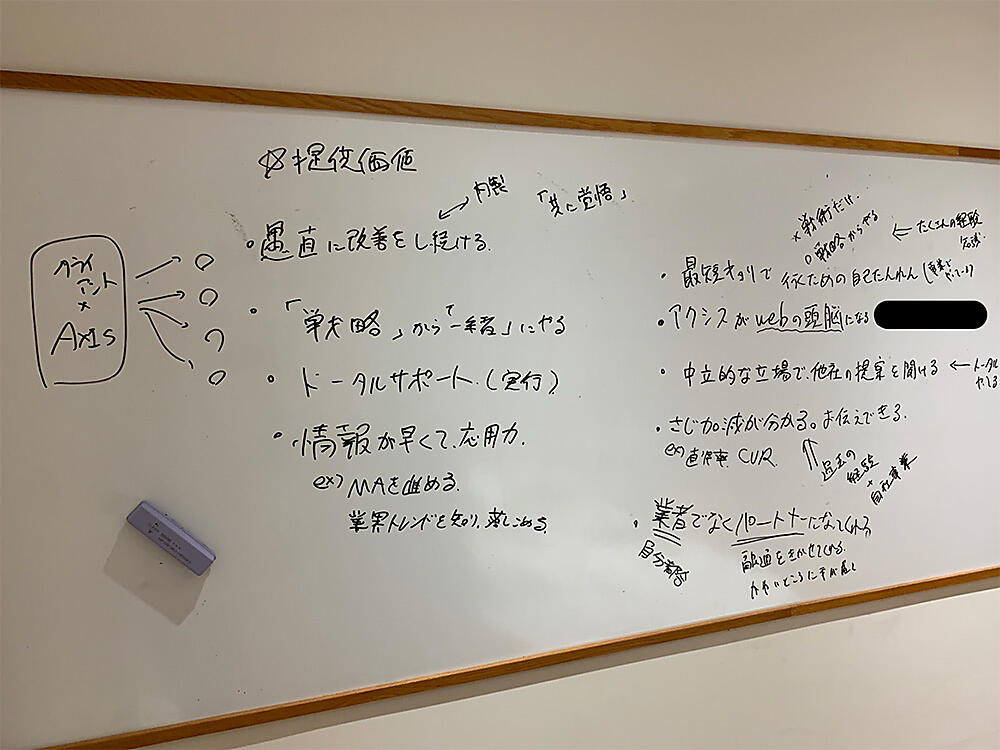 ☆提供価値
クライ
アント
×
AXIS
・愚直に改善をし続ける。
← 内製
「共に覚悟」
・「戦略」から「一緒」にやる
・トータルサポート。(実行)
・情報が早くて、応用力。
ex) MAを進める。
業界トレンドを知り、落しこめる。
×戦術だけ。
○戦略からやる
← たくさんの経験
・最短キョリで行くための自己たんれん
・アクシスがwebの頭脳になる
・中立的な立場で、他社の提案を聞ける
← トータル
・さじ加減が分かる。お伝えできる。
ex) 直帰率 CVR
過去の
経験
+
自社事業
・業者でなくパートナーになってくれる
自分都合
融通をきかせてくれる。
かゆいところに手が届く